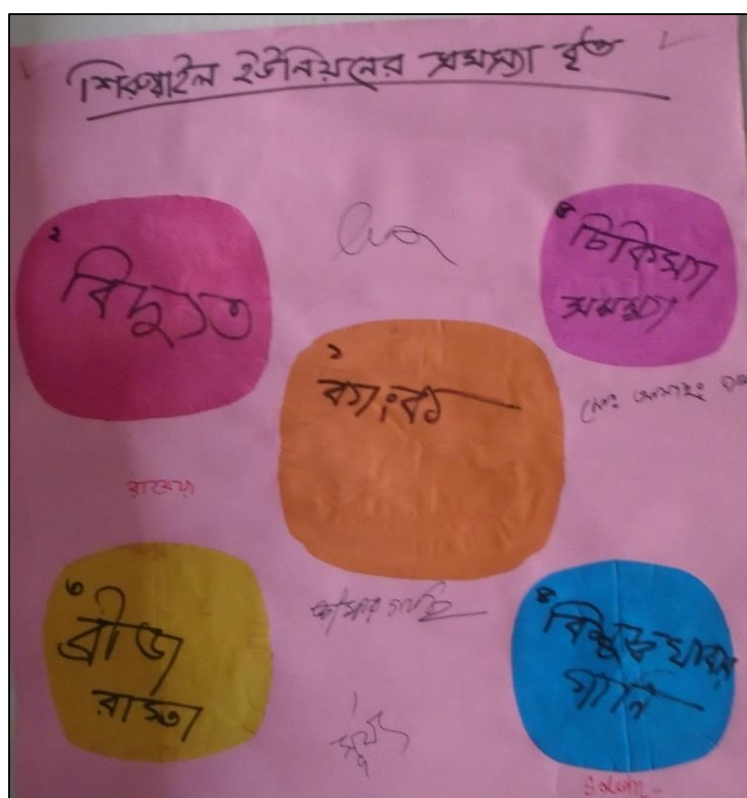 শিরুয়াইল ইউনিয়নের সমস্যা বৃত্ত
২
বিদ্যুত
৫
চিকিৎসা
সমস্যা
১
ব্যাংক
রাবেয়া
৩
ব্রীজ
রাস্তা
৪
বিশুদ্ধ খাবার
পানি
সূর্য